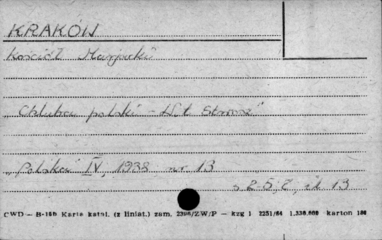 KRAKÓW
Kościół Marjacki
Chluba polski - Wit Stwosz
"Polska" IV, 1938 nr 13
s 2-5, 7, il 13
CWD — B-16b Karta katal. (z liniat.) zam. 2398/ZW/P — kzg 1 2251/64 1.338.000 karton 180